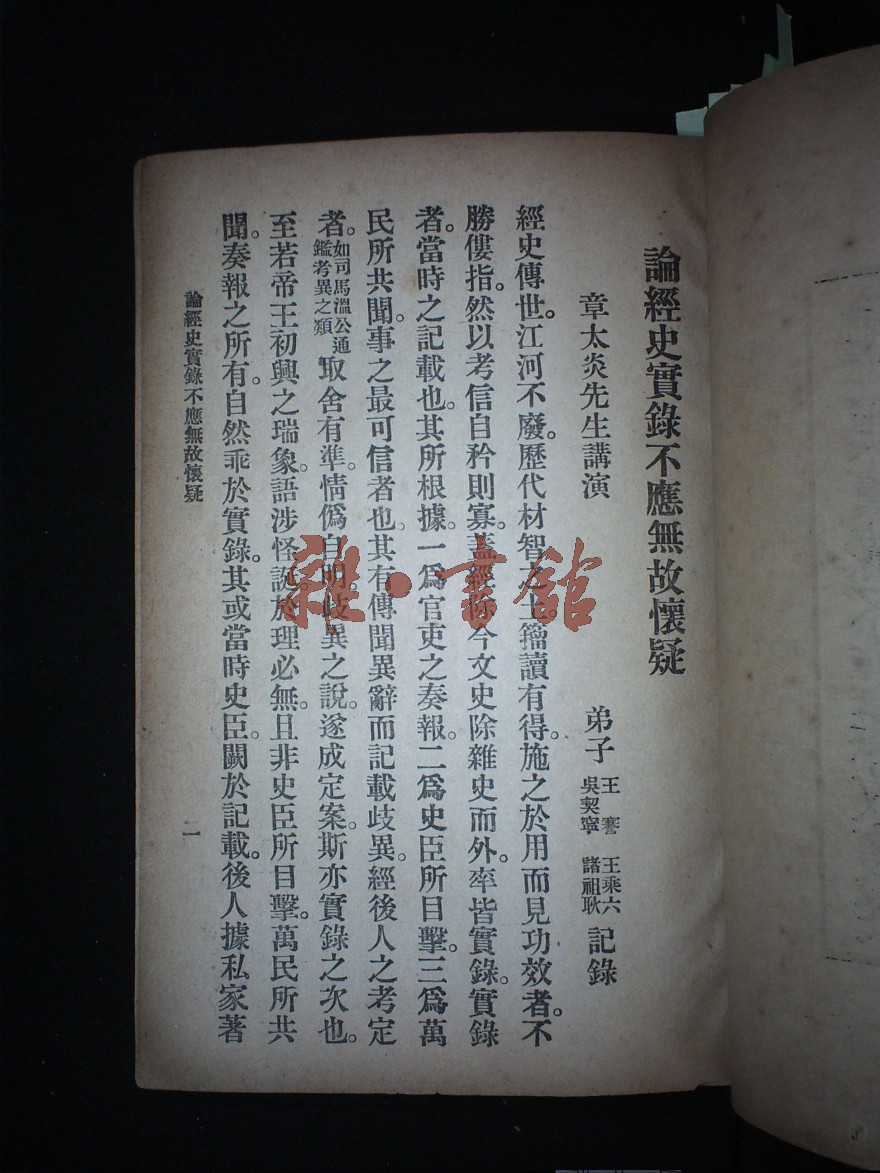 論經史實錄不應無故懷疑
章太炎先生講演
弟子 王謇 王乘六 吳契寧 諸祖耿 記錄
經史傳世。江河不廢。歷代材智之士籀讀有得。施之於用而見功效者。不
勝僂指。然以考信自矜則寡。蓋經除今文史除雜史而外。率皆實錄。實錄
者。當時之記載也。其所根據。一爲官吏之奏報。二爲史臣所目擊。三爲萬
民所共聞。事之最可信者也。其有傳聞異辭而記載歧異。經後人之考定
者。如司馬溫公通鑑考異之類取舍有準。情僞自明。歧異之說。遂成定案。斯亦實錄之次也。
至若帝王初興之瑞象。語涉怪誕。於理必無。且非史臣所目擊。萬民所共
聞。奏報之所有。自然乖於實錄。其或當時史臣。闕於記載。後人據私家著
論經史實錄不應無故懷疑
一
雜·書館